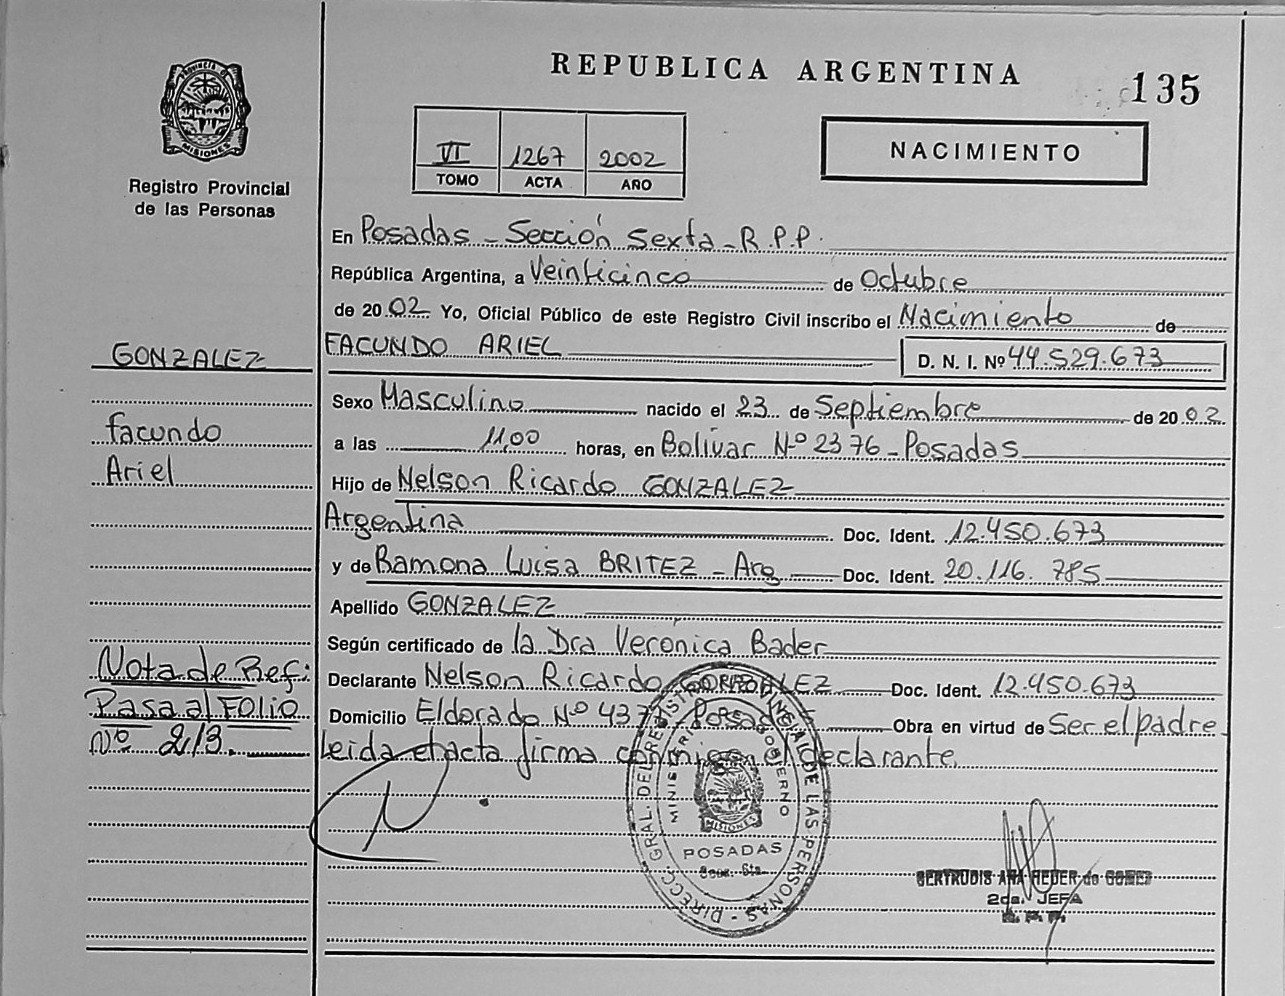 REPUBLICA ARGENTINA
135
PROVINCIA D
MISIONES
Registro Provincial
de las Personas
VI 1267 2002
TOMO ACTA AÑO
NACIMIENTO
En Posadas - Sección Sexta - R.P.P.
República Argentina, a Veinticinco de Octubre
de 2002 Yo, Oficial Público de este Registro Civil inscribo el Nacimiento de
GONZALEZ
FACUNDO ARIEL D. N. I. Nº 44.529.673
Sexo Masculino nacido el 23 de Septiembre de 2002
Facundo
a las 11,00 horas, en Bolívar Nº 2376 - Posadas
Ariel
Hijo de Nelson Ricardo GONZALEZ
Argentina Doc. Ident. 12.450.673
y de Ramona Luisa BRITEZ - Arg Doc. Ident. 20.116.785
Apellido GONZALEZ
Según certificado de la Dra Veronica Bader
Nota de Ref:
Declarante Nelson Ricardo GONZALEZ Doc. Ident. 12.450.673
Pasa al FOLIO
Domicilio Eldorado Nº 437 - Posadas Obra en virtud de Ser el padre
Nº 213.
Leida el acta firma conmigo el declarante.
DIRECC. GRAL. DEL REGISTRO PROVINCIAL DE LAS PERSONAS
MINISTERIO DE GOBIERNO
MISIONES
POSADAS
Secc. 6ta.
GERTRUDIS ANA REDER de GOMEZ
2da. JEFA
R. P. P.